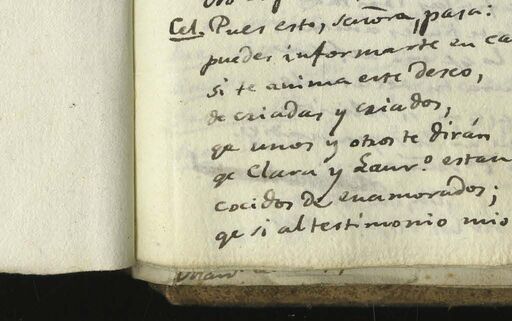 Cel. Pues esto, señora, pasa:
puedes informarte en ca
si te anima este deseo,
de criadas y criados,
qe unos y otros te dirán
qe Clara y Laur.º estan
cocidos de enamorados;
qe si al testimonio mio